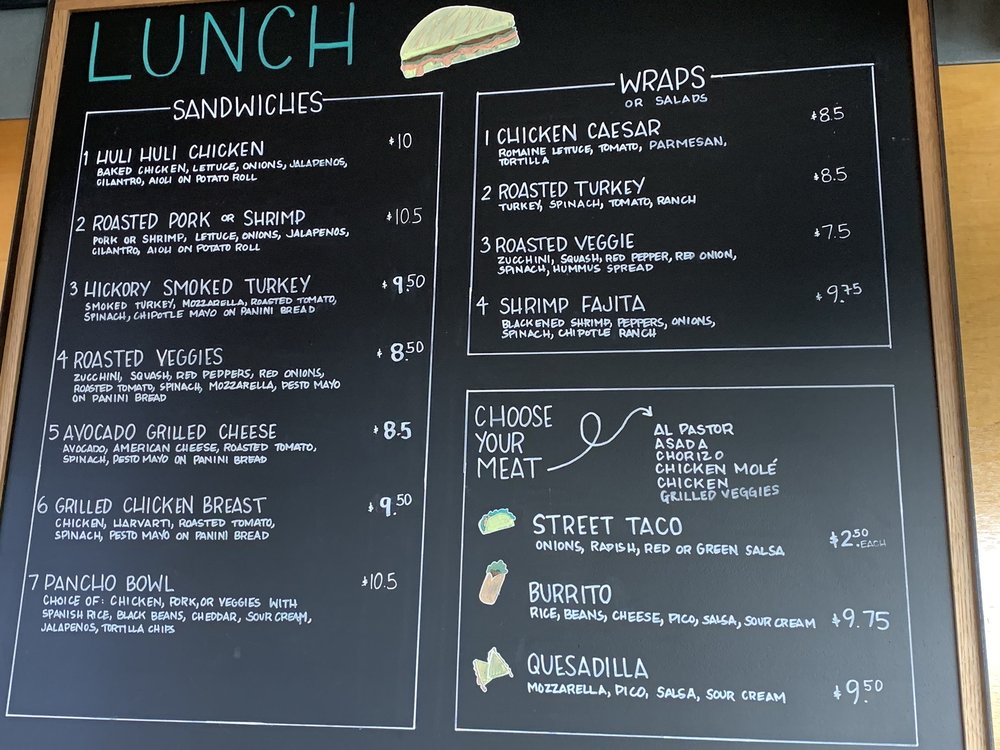 LUNCH
SANDWICHES
1 HULI HULI CHICKEN $10
BAKED CHICKEN, LETTUCE, ONIONS, JALAPENOS,
CILANTRO, AIOLI ON POTATO ROLL
2 ROASTED PORK OR SHRIMP $10.5
PORK OR SHRIMP, LETTUCE, ONIONS, JALAPENOS,
CILANTRO, AIOLI ON POTATO ROLL
3 HICKORY SMOKED TURKEY $9.50
SMOKED TURKEY, MOZZARELLA, ROASTED TOMATO,
SPINACH, CHIPOTLE MAYO ON PANINI BREAD
4 ROASTED VEGGIES $8.50
ZUCCHINI, SQUASH, RED PEPPERS, RED ONIONS,
ROASTED TOMATO, SPINACH, MOZZARELLA, PESTO MAYO
ON PANINI BREAD
5 AVOCADO GRILLED CHEESE $8.5
AVOCADO, AMERICAN CHEESE, ROASTED TOMATO,
SPINACH, PESTO MAYO ON PANINI BREAD
6 GRILLED CHICKEN BREAST $9.50
CHICKEN, HARVARTI, ROASTED TOMATO,
SPINACH, PESTO MAYO ON PANINI BREAD
7 PANCHO BOWL $10.5
CHOICE OF: CHICKEN, PORK, OR VEGGIES WITH
SPANISH RICE, BLACK BEANS, CHEDDAR, SOUR CREAM,
JALAPENOS, TORTILLA CHIPS
WRAPS
OR SALADS
1 CHICKEN CAESAR $8.5
ROMAINE LETTUCE, TOMATO, PARMESAN,
TORTILLA
2 ROASTED TURKEY $8.5
TURKEY, SPINACH, TOMATO, RANCH
3 ROASTED VEGGIE $7.5
ZUCCHINI, SQUASH, RED PEPPER, RED ONION,
SPINACH, HUMMUS SPREAD
4 SHRIMP FAJITA $9.75
BLACKENED SHRIMP, PEPPERS, ONIONS,
SPINACH, CHIPOTLE RANCH
CHOOSE
YOUR
MEAT
AL PASTOR
ASADA
CHORIZO
CHICKEN MOLÉ
CHICKEN
GRILLED VEGGIES
STREET TACO $2.50 EACH
ONIONS, RADISH, RED OR GREEN SALSA
BURRITO
RICE, BEANS, CHEESE, PICO, SALSA, SOUR CREAM $9.75
QUESADILLA
MOZZARELLA, PICO, SALSA, SOUR CREAM $9.50